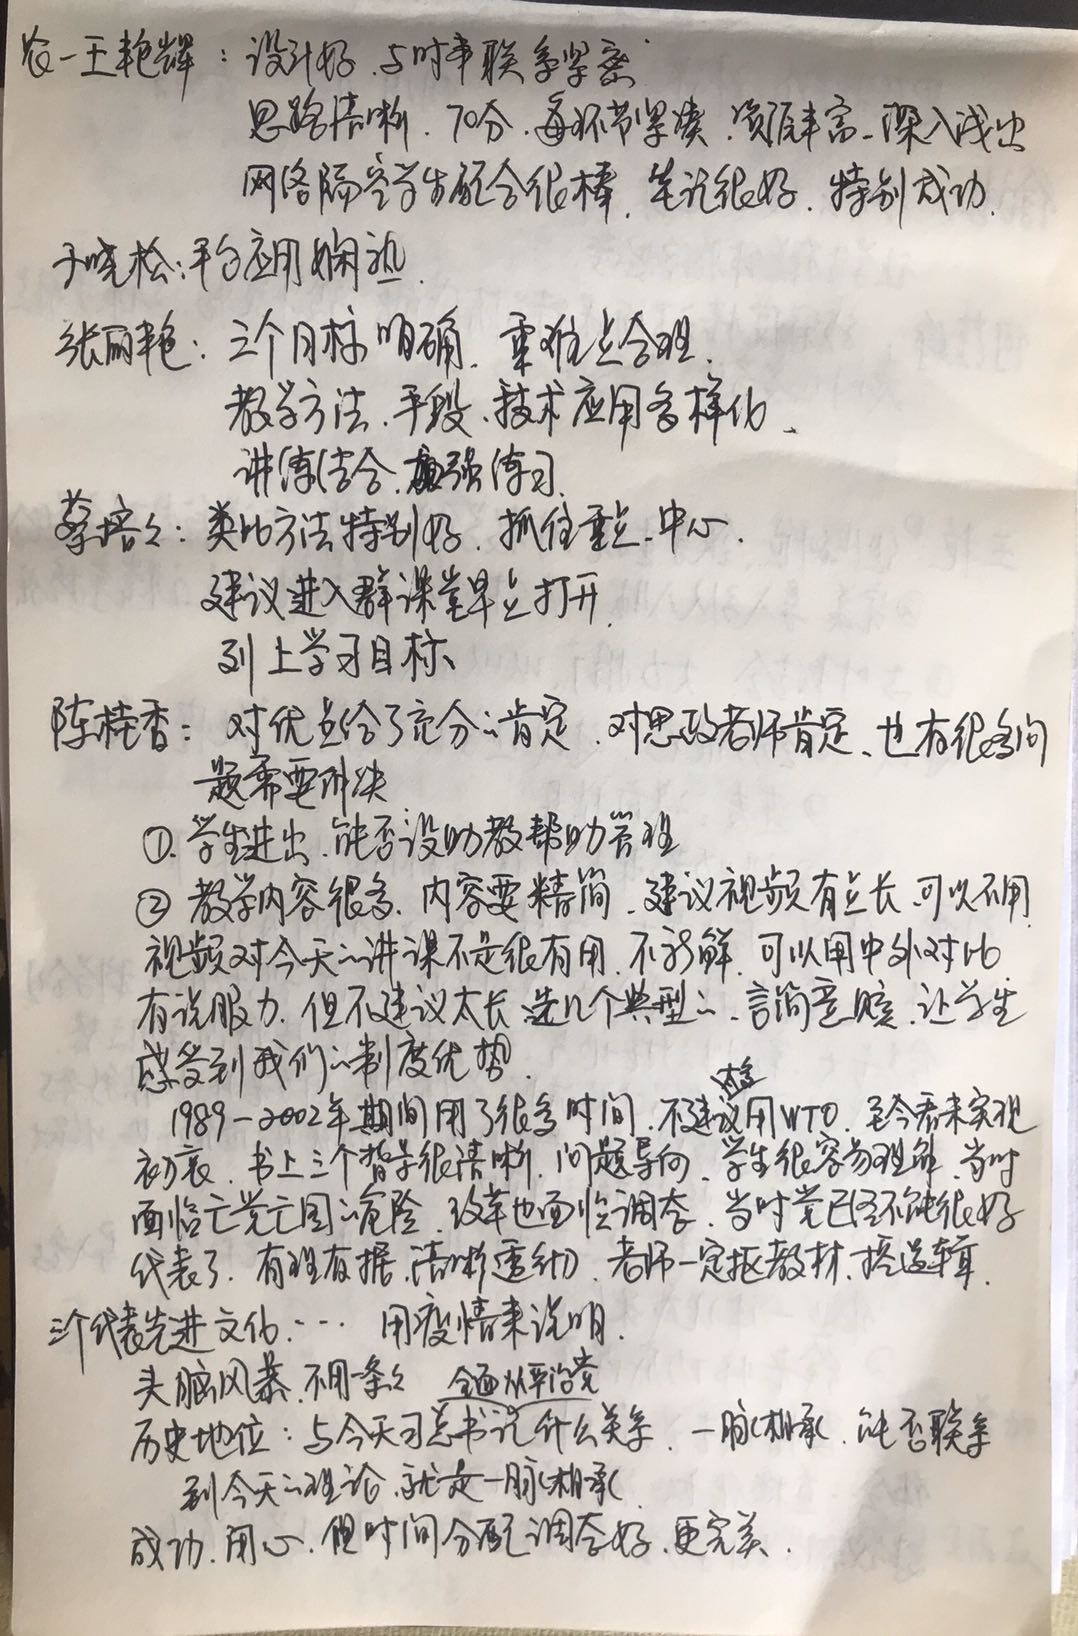 农一王艳辉：设计好、与时事联系紧密
思路清晰、70分、每环节紧凑、资源丰富、深入浅出
网络隔空学生配合很棒、笔记很好、特别成功、
于晓松：平台应用娴熟、
张丽艳：三个目标明确、重难点合理、
教学方法、手段、技术应用多样化、
讲练结合、加强练习、
蔡培々：类比方法特别好、抓住重点、中心、
建议进入群课堂早点打开
列上学习目标、
陈桂香：对优点给了充分的肯定、对思政老师肯定、也有很多问
题需要解决
①、学生进出、能否设助教帮助管理
② 教学内容很多、内容要精简、建议视频有点长、可以不用
视频对今天的讲课不是很有用、不新鲜、可以用中外对比
有说服力、但不建议太长、选几个典型的、言简意赅、让学生
感受到我们的制度优势、
1989—2002年期间用了很多时间、不建议用WTO、至今看来实现
初衷、书上三个暂字很清晰、问题导向、学生很容易理解、当时
面临亡党亡国的危险、改革也面临调整、当时党已经不能很好
代表了、有理有据、清晰透彻、老师一定抠教材、捋逻辑、
三个代表先进文化、… 用疫情来说明、
头脑风暴、不用一条々 全面从严治党
历史地位：与今天习总书记什么关系、一脉相承、能否联系
到今天的理论、就是一脉相承
成功、用心、但时间分配调整好、更完美、